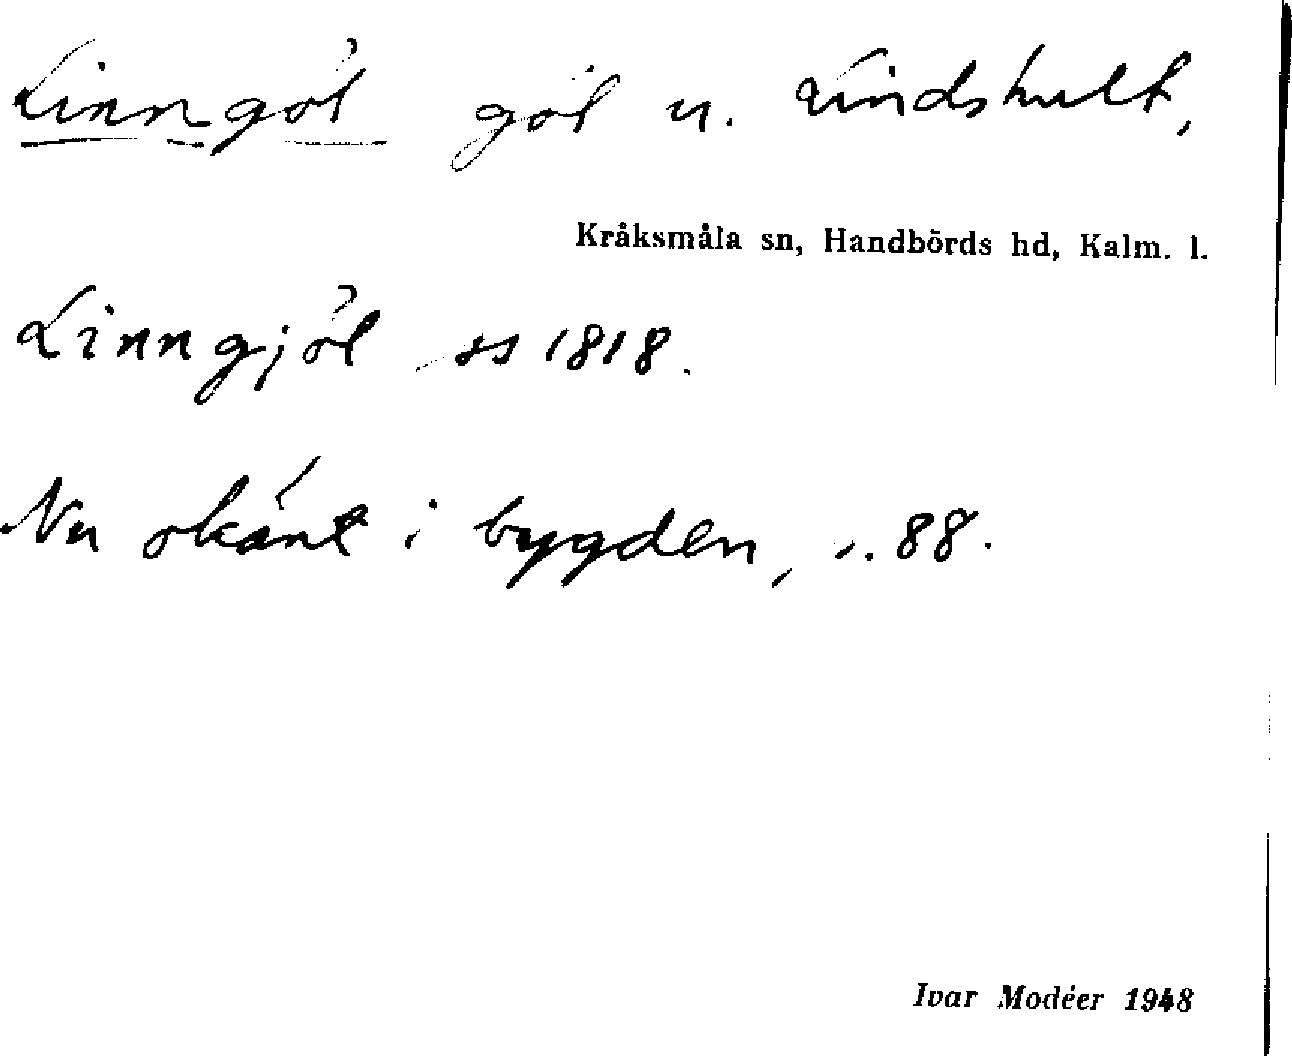 Linngöl göl u. Lindshult,
Kråksmåla sn, Handbörds hd, Kalm. l.
Linngjöl ss 1818.
Nu okänt i bygden, s. 88.
Ivar Modéer 1948